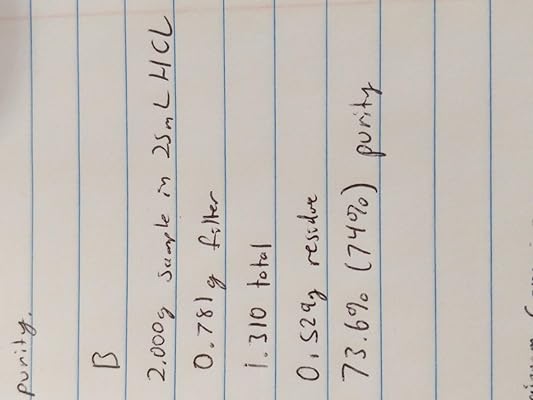 purity.
B
2.000g sample in 25mL HCL
0.781g filter
1.310 total
0.529g residue
73.6% (74%) purity